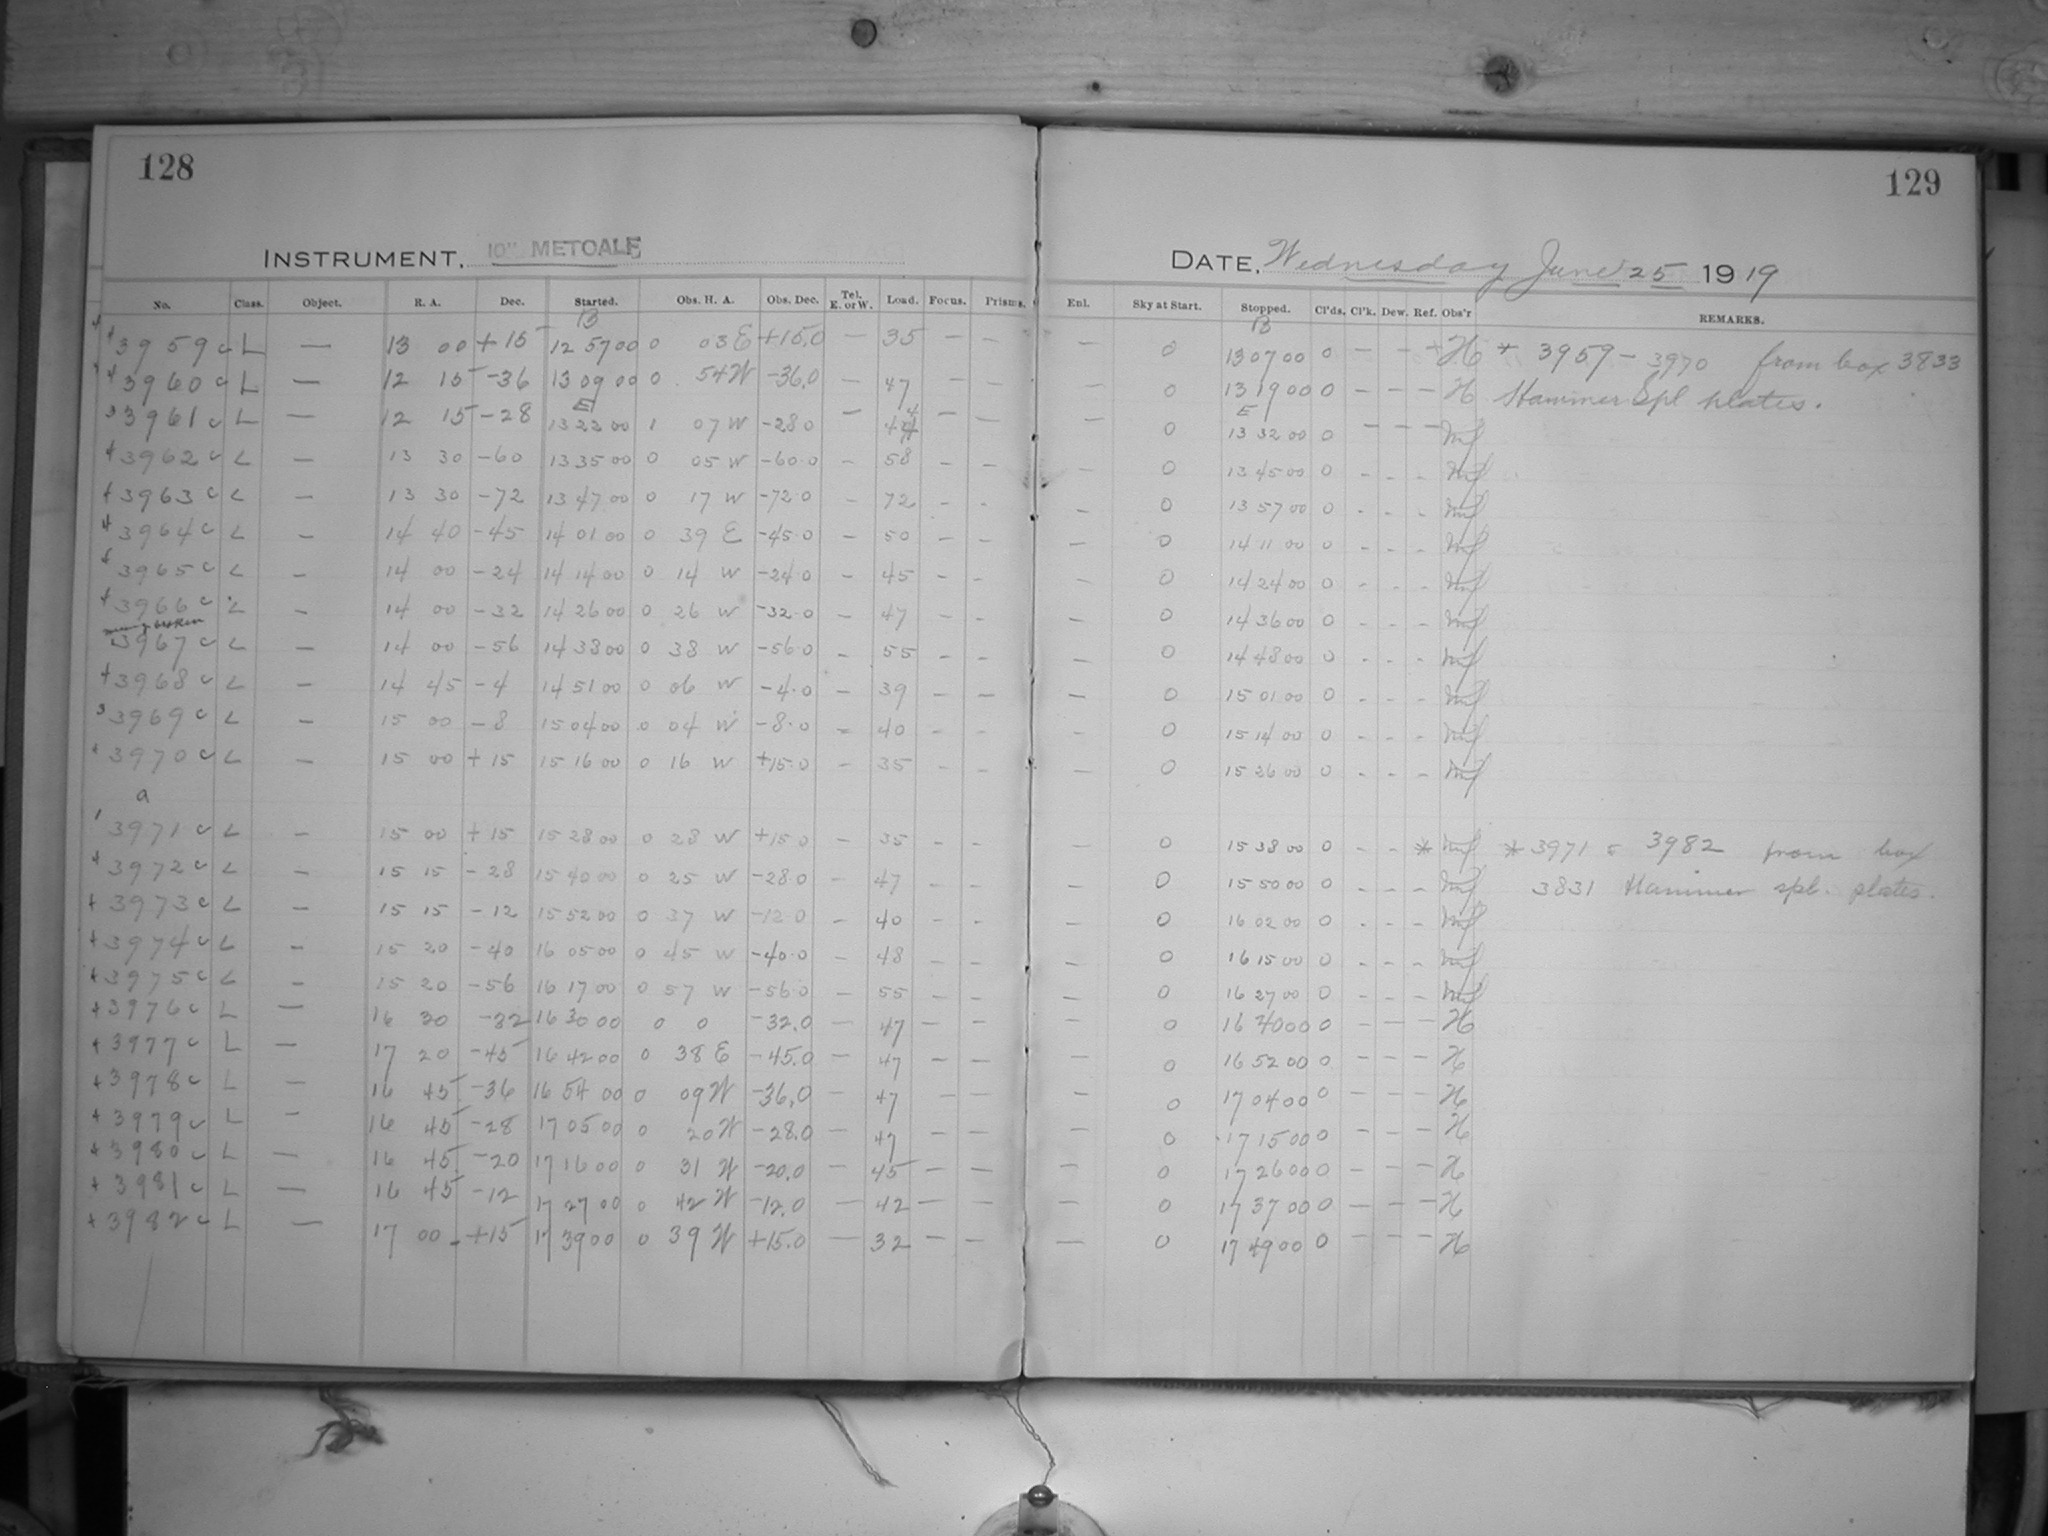 128
129
INSTRUMENT, 10" METCALF
DATE, Wednesday June 25 1919
No. Class. Object. R. A. Dec. Started. Obs. H. A. Obs. Dec. Tel. E. or W. Load. Focus. Prisms. Enl. Sky at Start. Stopped. Cl'ds. Cl'k. Dew. Ref. Obs'r REMARKS.
B B
3959 c L — 13 00 +15 12 57 00 0 03 E +15.0 — 35 — — — 0 13 07 00 0 — — + H * 3959 - 3970 from box 3833
3960 c L — 12 15 -36 13 09 00 0 54 W -36.0 — 47 — — 0 13 19 00 0 — — — H Hammer Spl plates.
E E
3961 c L — 12 15 -28 13 22 00 1 07 W -28.0 — — — — 0 13 32 00 0 — — —
3962 c L — 13 30 -60 13 35 00 0 05 W -60.0 — 58 — — 0 13 45 00 0 - - -
3963 c L — 13 30 -72 13 47 00 0 17 W -72.0 — 72 - - — 0 13 57 00 0 - - -
3964 c L — 14 40 -45 14 01 00 0 39 E -45.0 — 50 — - — 0 14 11 00 0 - - -
3965 c L — 14 00 -24 14 14 00 0 14 W -24.0 — 45 - - — 0 14 24 00 0 - - -
3966 c L — 14 00 -32 14 26 00 0 26 W -32.0 — 47 - - — 0 14 36 00 0 - - -
broken
3967 c L — 14 00 -56 14 38 00 0 38 W -56.0 - 55 - - — 0 14 48 00 0 - - -
3968 c L — 14 45 -4 14 51 00 0 06 W -4.0 — 39 - — — 0 15 01 00 0 - - -
3969 c L — 15 00 -8 15 04 00 0 04 W -8.0 - 40 - - — 0 15 14 00 0 - - -
3970 c L — 15 00 +15 15 16 00 0 16 W +15.0 - 35 - - — 0 15 26 00 0 - - -
a
3971 c L — 15 00 +15 15 28 00 0 28 W +15.0 - 35 - - — 0 15 38 00 0 - - * * 3971 - 3982 from box
3972 c L — 15 15 -28 15 40 00 0 25 W -28.0 — 47 - - — 0 15 50 00 0 - - - 3831 Hammer spl. plates.
3973 c L — 15 15 -12 15 52 00 0 37 W -12.0 - 40 - - — 0 16 02 00 0 - - -
3974 c L — 15 20 -40 16 05 00 0 45 W -40.0 - 48 - - — 0 16 15 00 0 - - -
3975 c L — 15 20 -56 16 17 00 0 57 W -56.0 — 55 - - — 0 16 27 00 0 - - -
3976 c L — 16 30 -32 16 30 00 0 0 -32.0 — 47 — — — 0 16 40 00 0 — — — H
3977 c L — 17 20 -45 16 42 00 0 38 E -45.0 — 47 — — — 0 16 52 00 0 — — — H
3978 c L — 16 45 -36 16 54 00 0 09 W -36.0 — 47 — — — 0 17 04 00 0 — — — H
3979 c L — 16 45 -28 17 05 00 0 20 W -28.0 — 47 — — — 0 17 15 00 0 — — — H
3980 c L — 16 45 -20 17 16 00 0 31 W -20.0 — 45 — — — 0 17 26 00 0 — — — H
3981 c L — 16 45 -12 17 27 00 0 42 W -12.0 — 42 — — — 0 17 37 00 0 — — — H
3982 c L — 17 00 +15 17 39 00 0 39 W +15.0 — 32 — — — 0 17 49 00 0 — — — H